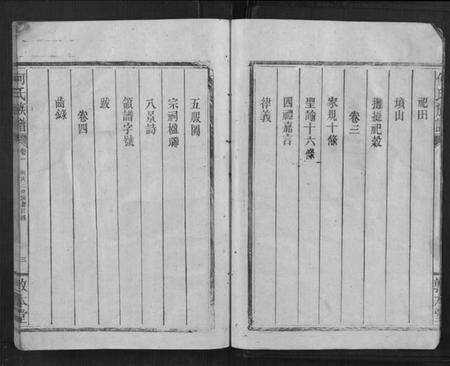 祀田
墳山
捐祀穀
卷三
家規十條
聖諭十六條
四禮嘉言
律義
五服圖
宗祠楹聯
八景詩
領譜字號
跋
卷四
齒錄
何氏族譜
卷
三
敦本堂